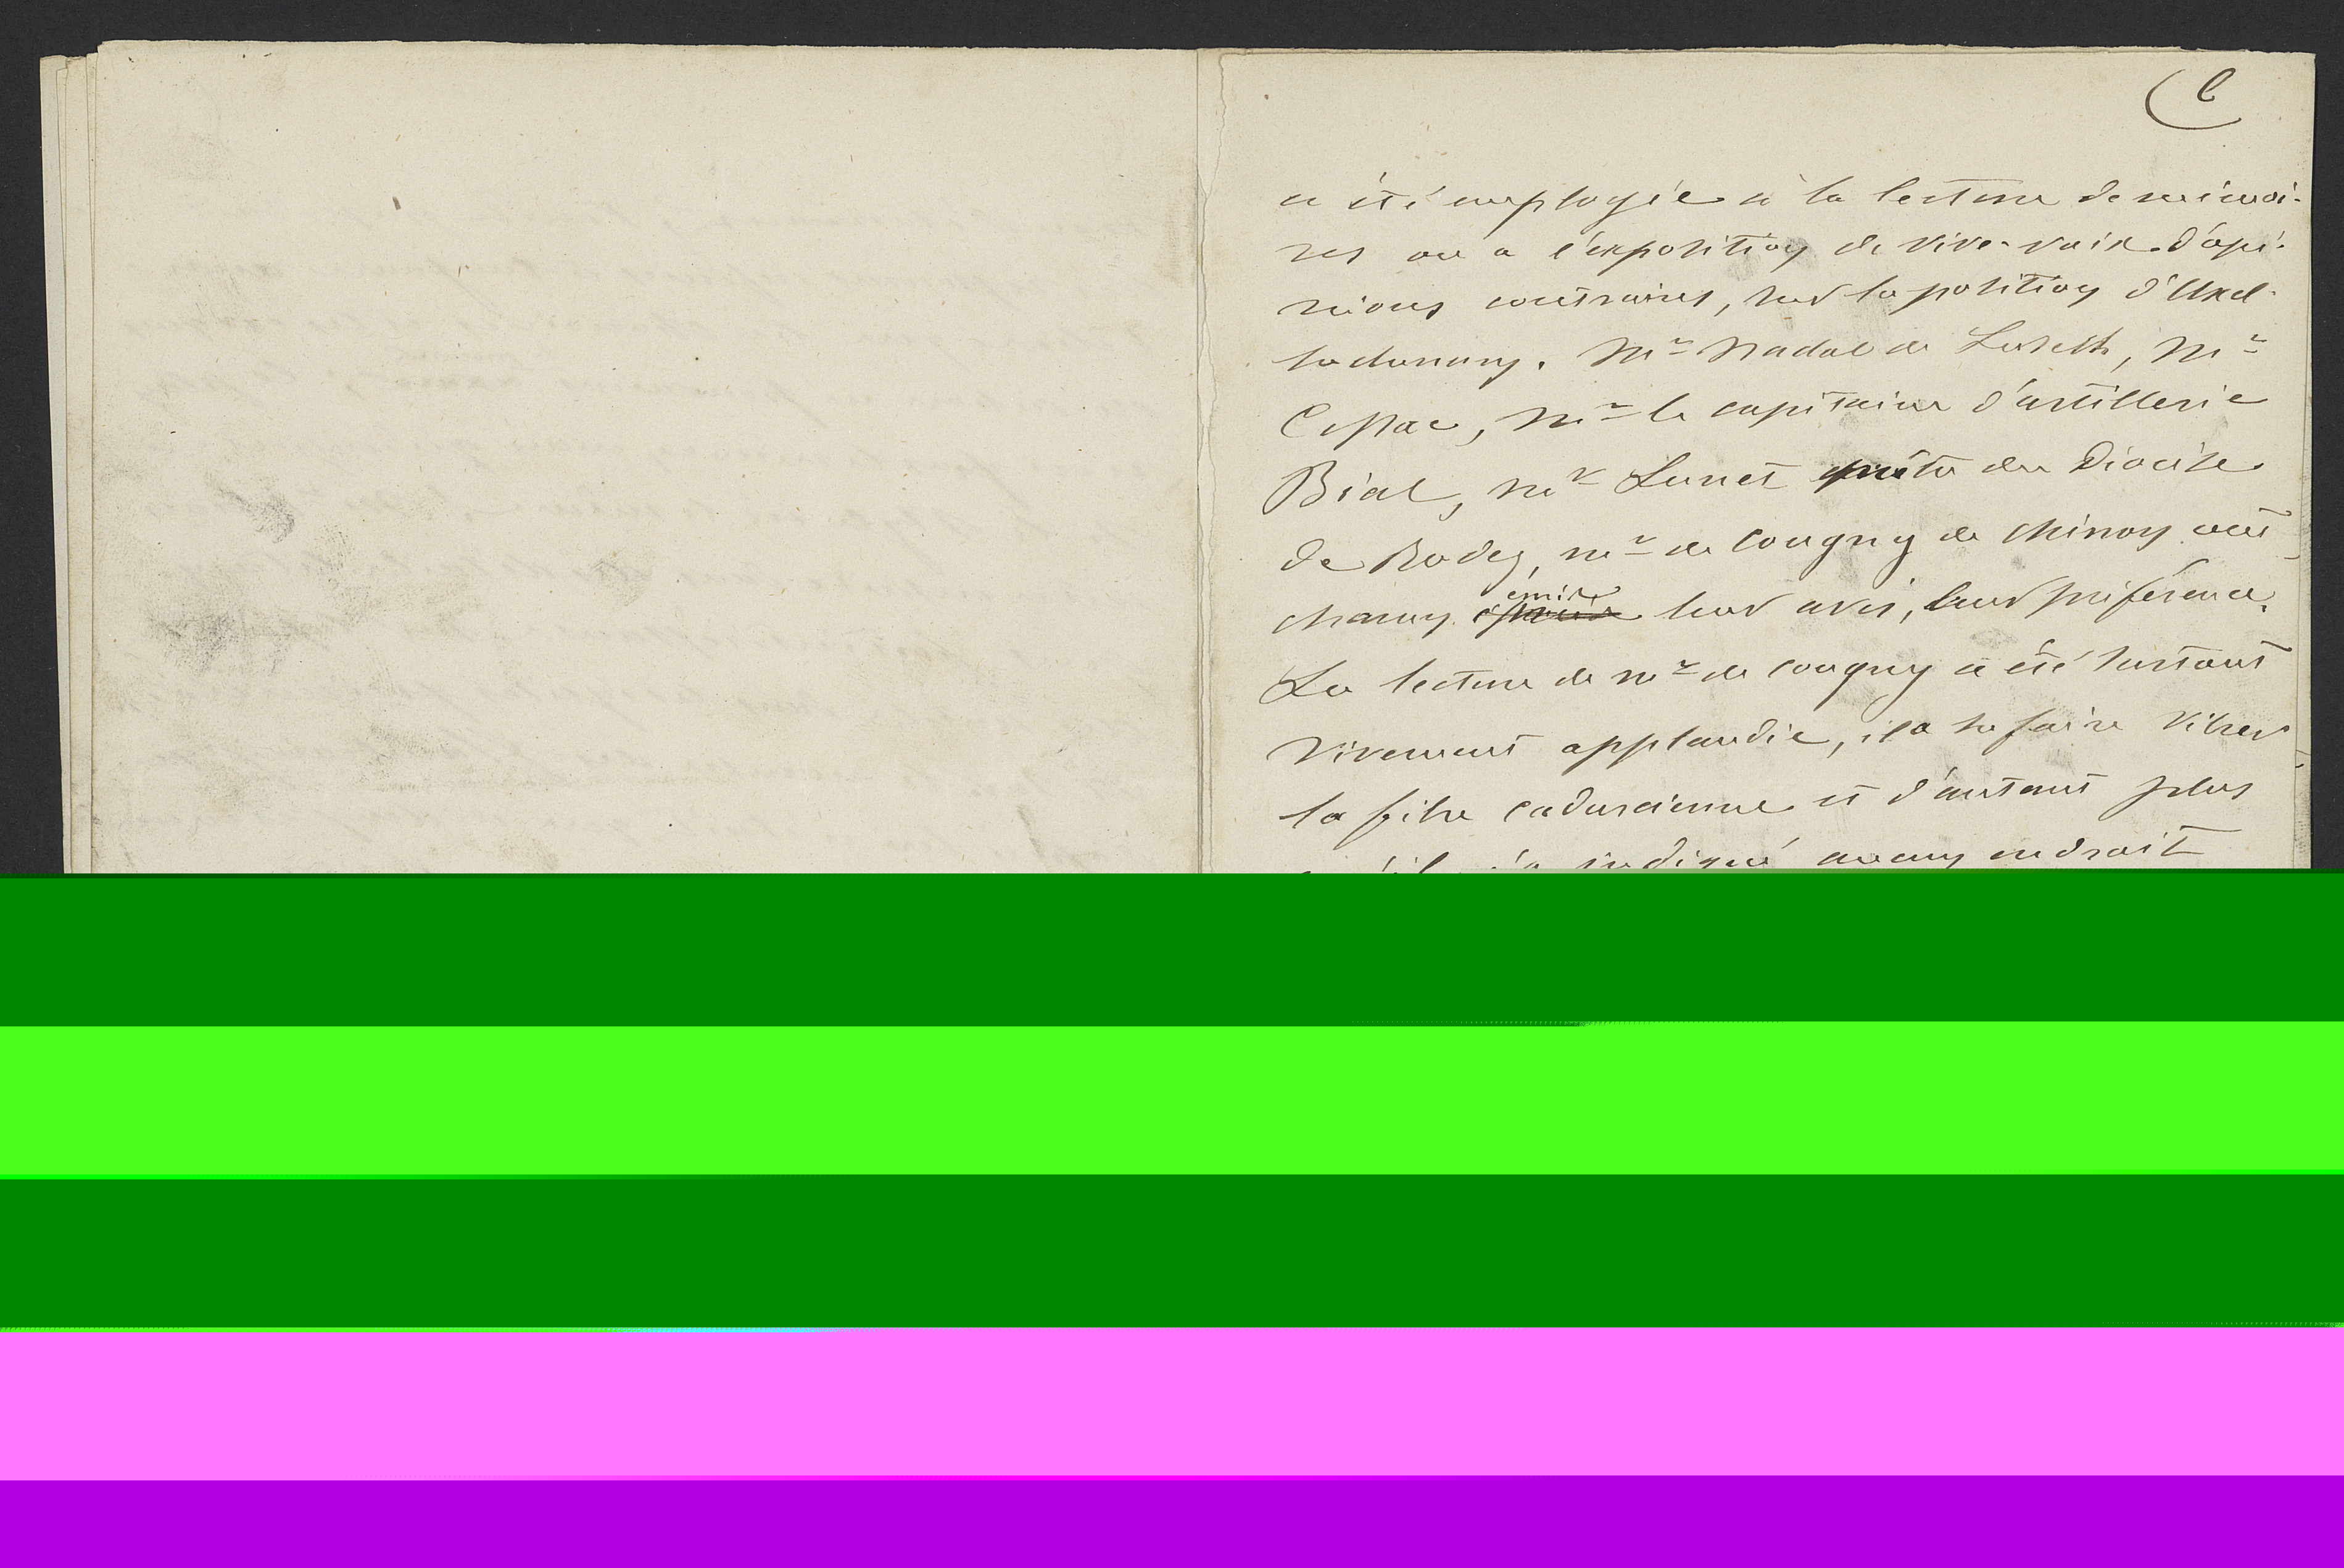 6
a été employée à la lecture de mémoi-
res ou a l'exposition de vive-voix d'opi-
nions contraires, sur la position d'Uxel-
lodunum. Mr Nadal de
, Mr
Cessac, Mr le capitaine d'artillerie
Bial, Mr Lunet prêtre du Diocèse
de Rodez, Mr de Cougny de Chinon ont
chacun émis leur avis, leur préférence.
La lecture de Mr de Cougny a été surtout
vivement applaudie, il a su faire vibrer
la fibre cadurcienne et d'autant plus
indiqué aucun endroit